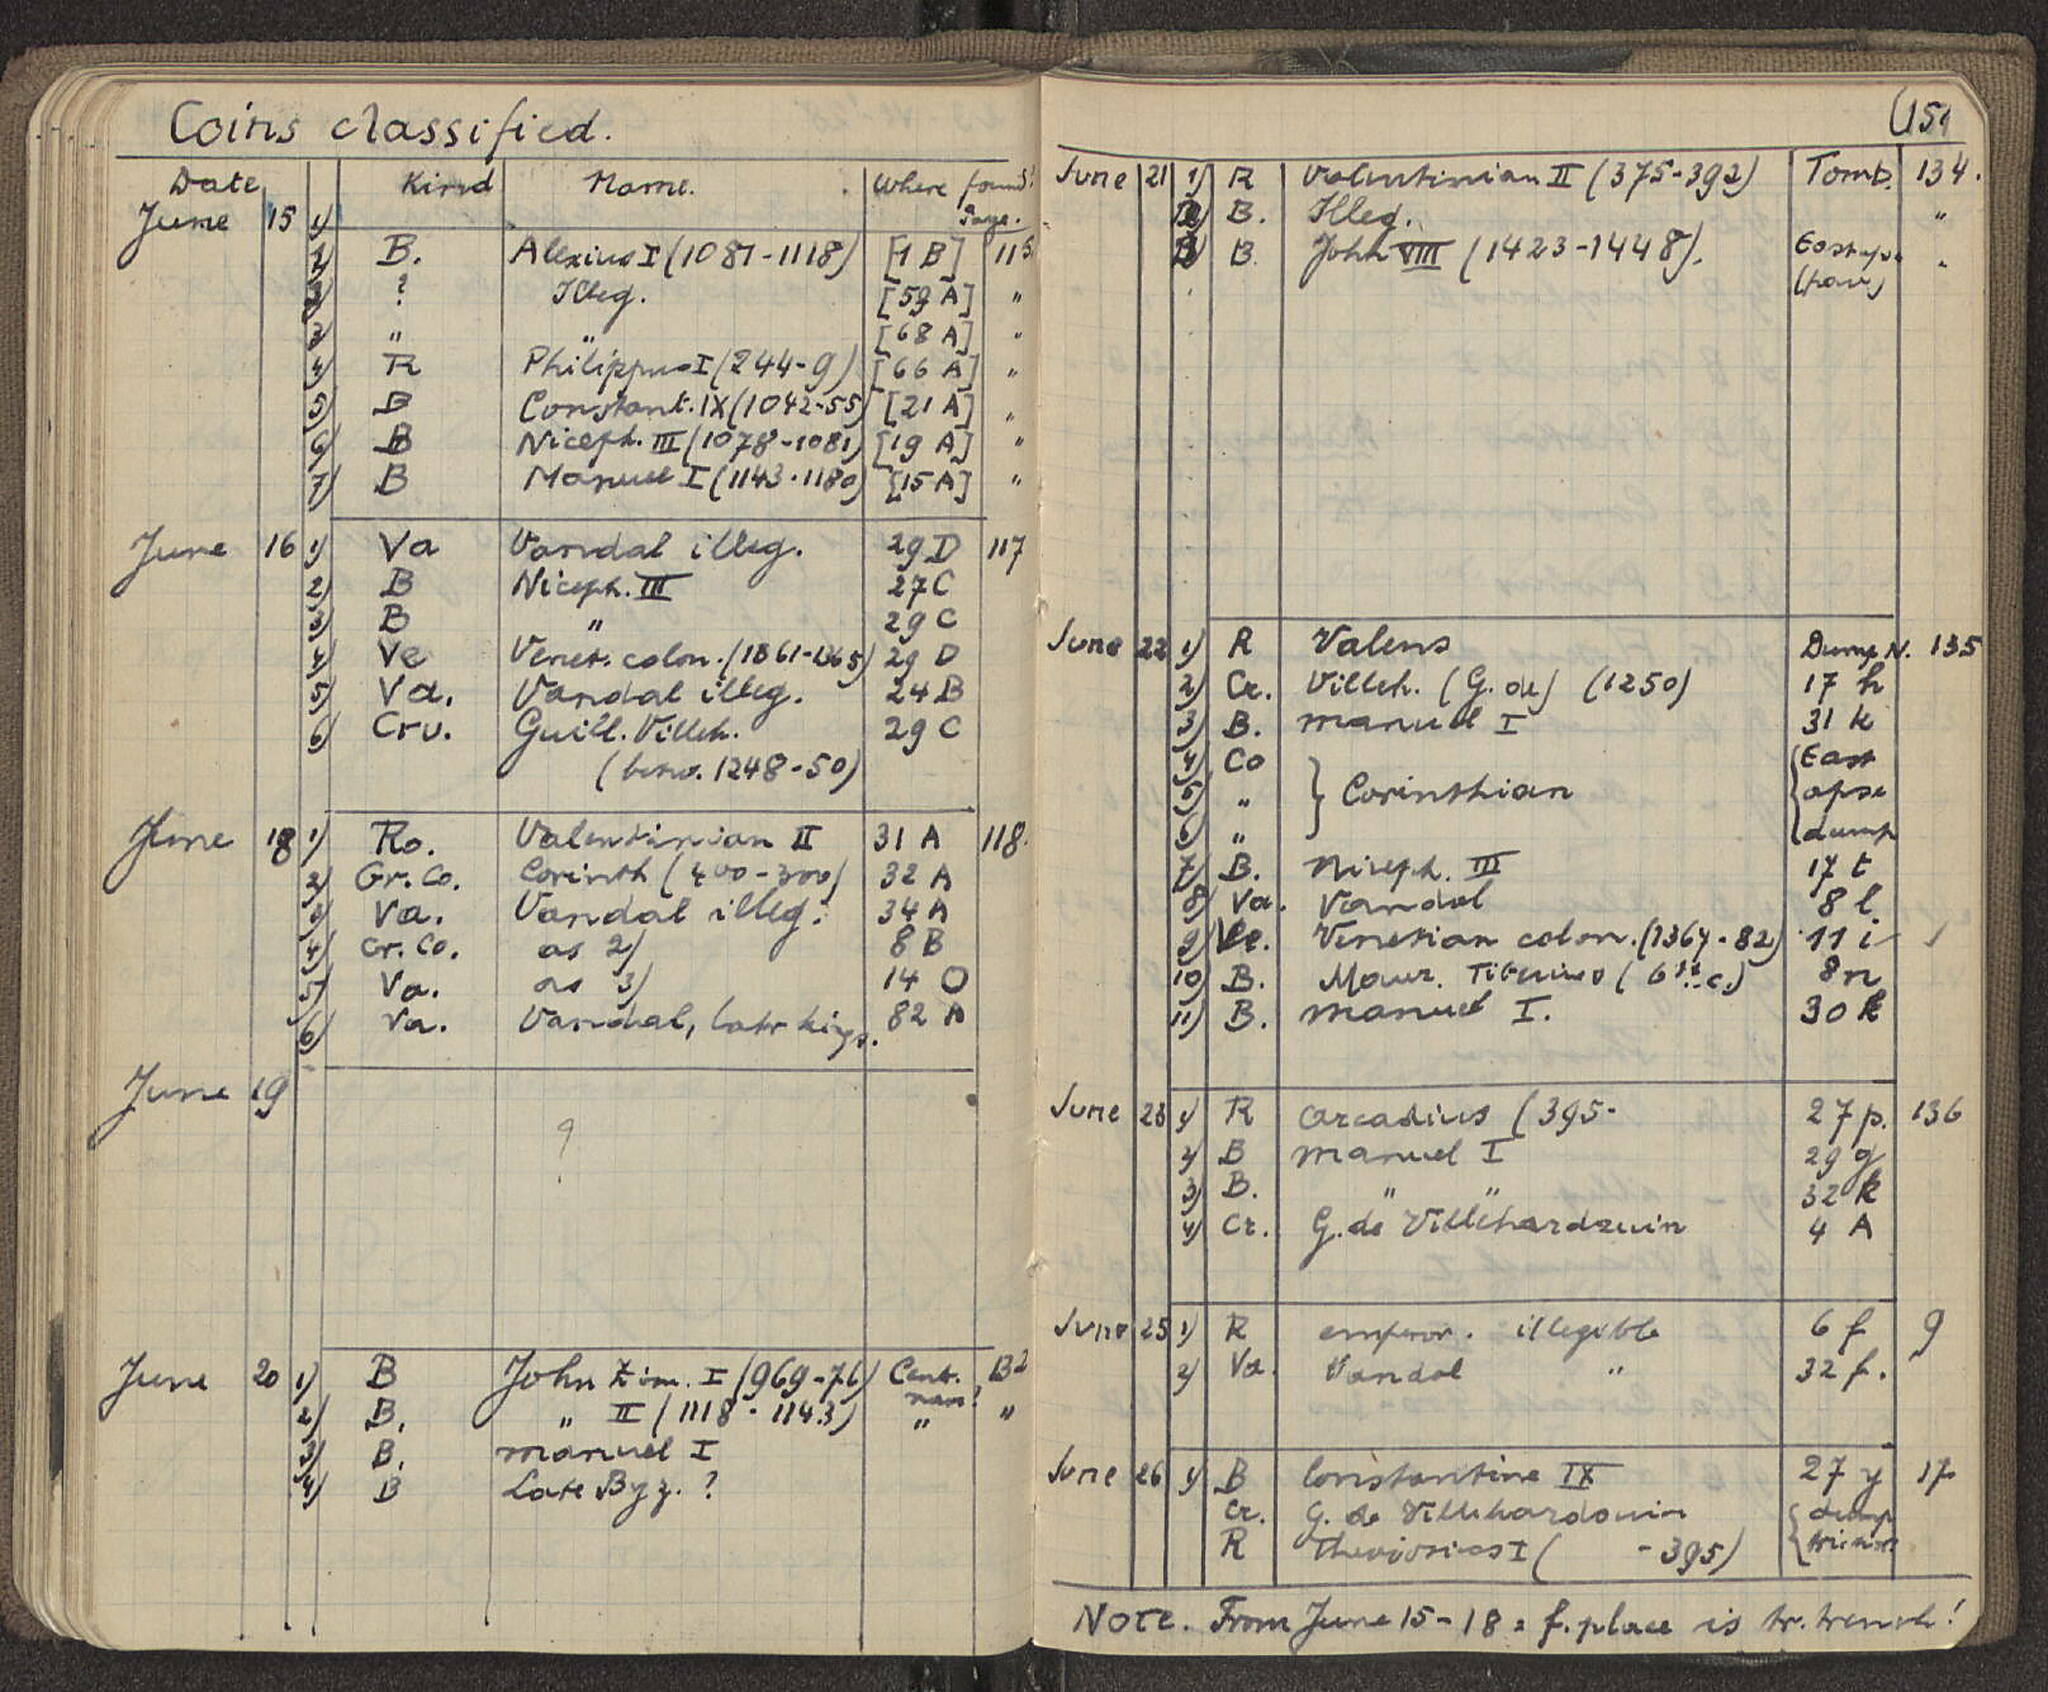 Coins classified.
Date Kind Name. Where found? Page.
June 15 1)
1) B. Alexius I (1081-1118) [1 B] 115
2) ? Illeg. [59 A] "
3) " " [68 A] "
4) R Philippus I (244-9) [66 A] "
5) B Constant. IX (1042-55) [21 A] "
6) B Niceph. III (1078-1081) [19 A] "
7) B Manuel I (1143-1180) [15 A] "
June 16 1) Va Vandal illeg. 29 D 117
2) B Niceph. III 27 C
3) B " 29 C
4) Ve Venet. colon. (1361-1365) 29 D
5) Va. Vandal illeg. 24 B
6) Cru. Guill. Villeh. 29 C
(betw. 1248-50)
June 18 1) Ro. Valentinian II 31 A 118.
2) Gr. Co. Corinth (400-300) 32 A
3) Va. Vandal illeg. 34 A
4) Gr. Co. as 2) 8 B
5) Va. as 3) 14 O
6) Va. Vandal, late kings. 82 A
June 19
?
June 20 1) B John Zim. I (969-76) Cent. nave?
2) B. " II (1118-1143) " "
3) B. Manuel I
4) B Late Byz. ?
151
June 21 1) R Valentinian II (375-392) Tomb. 134.
2) B. Illeg. "
3) B. John VIII (1423-1448). East apse "
June 22 1) R Valens Dump N. 135
2) Cr. Villeh. (G. de) (1250) 17 h
3) B. Manuel I 31 k
4) Co { East
5) " } Corinthian { apse
6) " { dump
7) B. Niceph. III 17 t
8) Va. Vandal 8 l.
9) Ve. Venetian colon. (1367-82) 11 i
10) B. Maur. Tiberius (6th c.) 8 n
11) B. Manuel I. 30 k
June 23 1) R Arcadius (395- 27 p. 136
2) B Manuel I 29 g
3) B. " " 32 k
4) Cr. G. de Villehardouin 4 A
June 25 1) R emperor. illegible 6 f 9
2) Va. Vandal " 32 f.
June 26 1) B Constantine IX 27 y 17
Cr. G. de Villehardouin { dump
R Theodosius I ( -395)
Note. From June 15-18 = f. place is tr. trench!